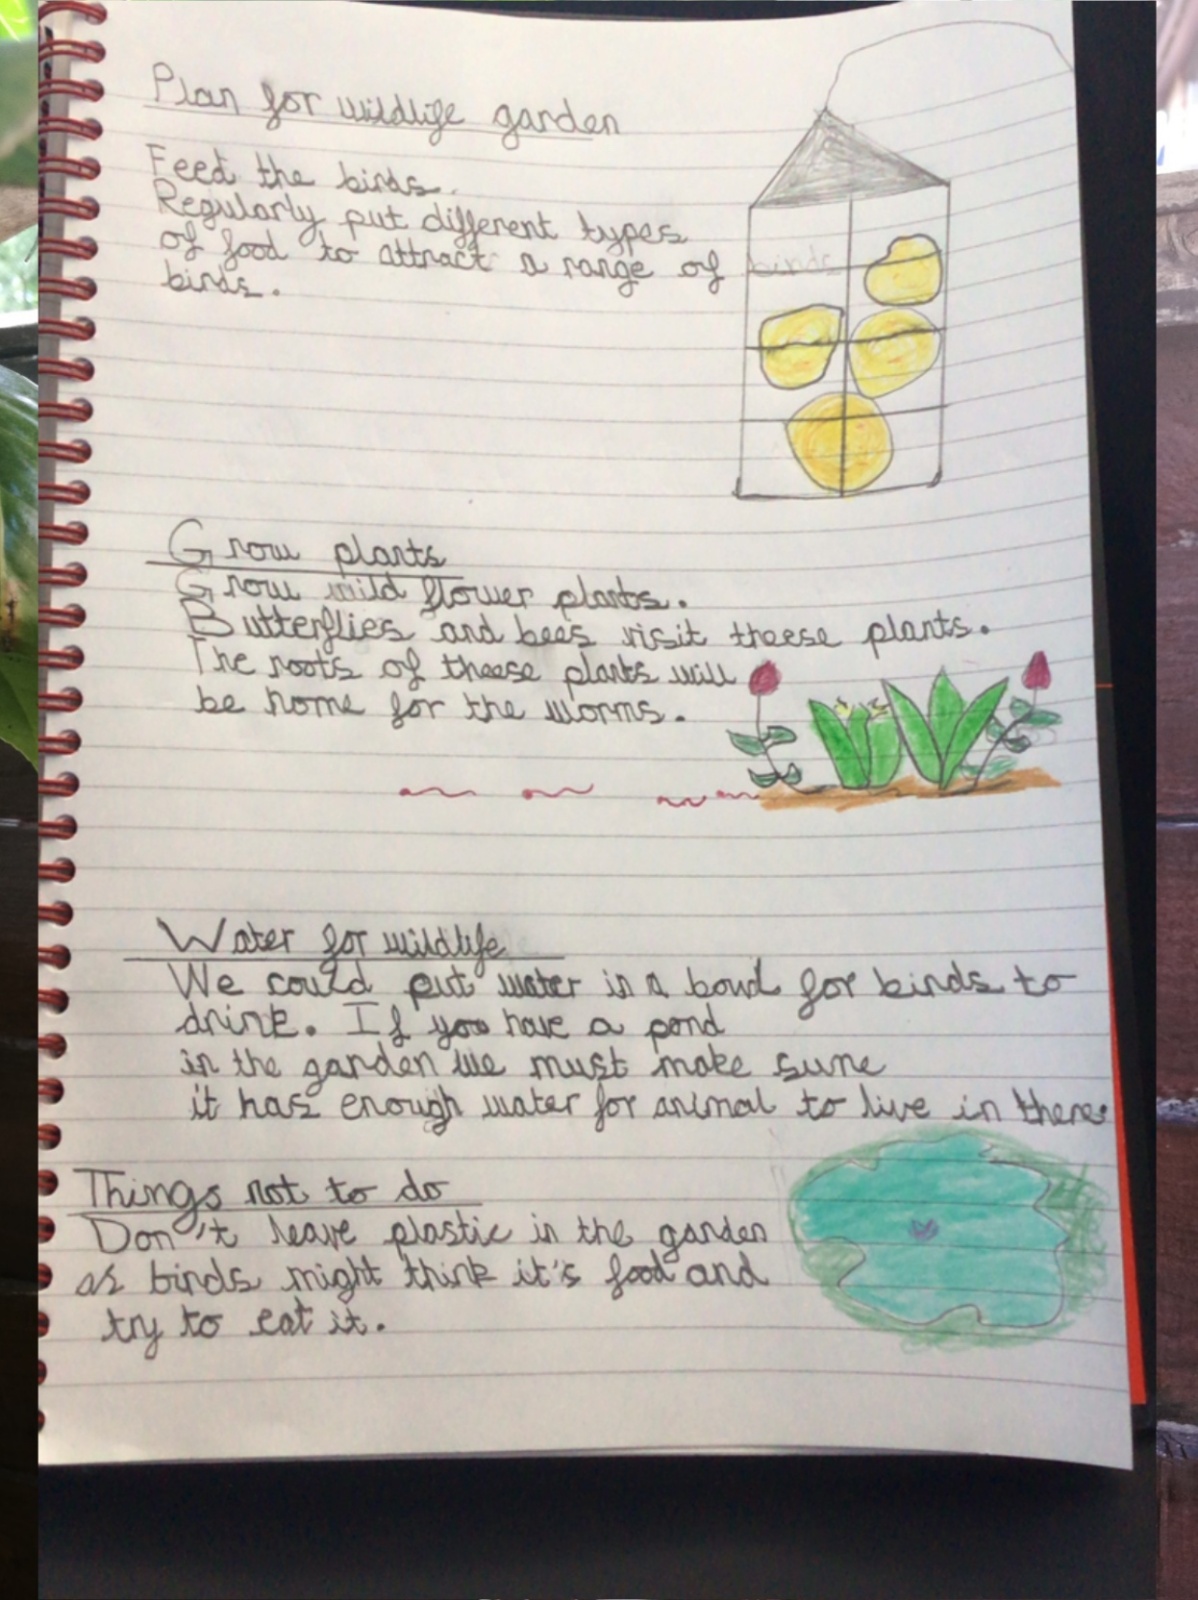 Plan for wildlife garden
Feed the birds.
Regularly put different types
of food to attract a range of birds
birds.
Grow plants
Grow wild flower plants.
Butterflies and bees visit theese plants.
The roots of theese plants will
be home for the worms.
Water for wildlife
We could put water in a bowl for birds to
drink. If you have a pond
in the garden we must make sure
it has enough water for animal to live in there.
Things not to do
Don't leave plastic in the garden
as birds might think it's food and
try to eat it.